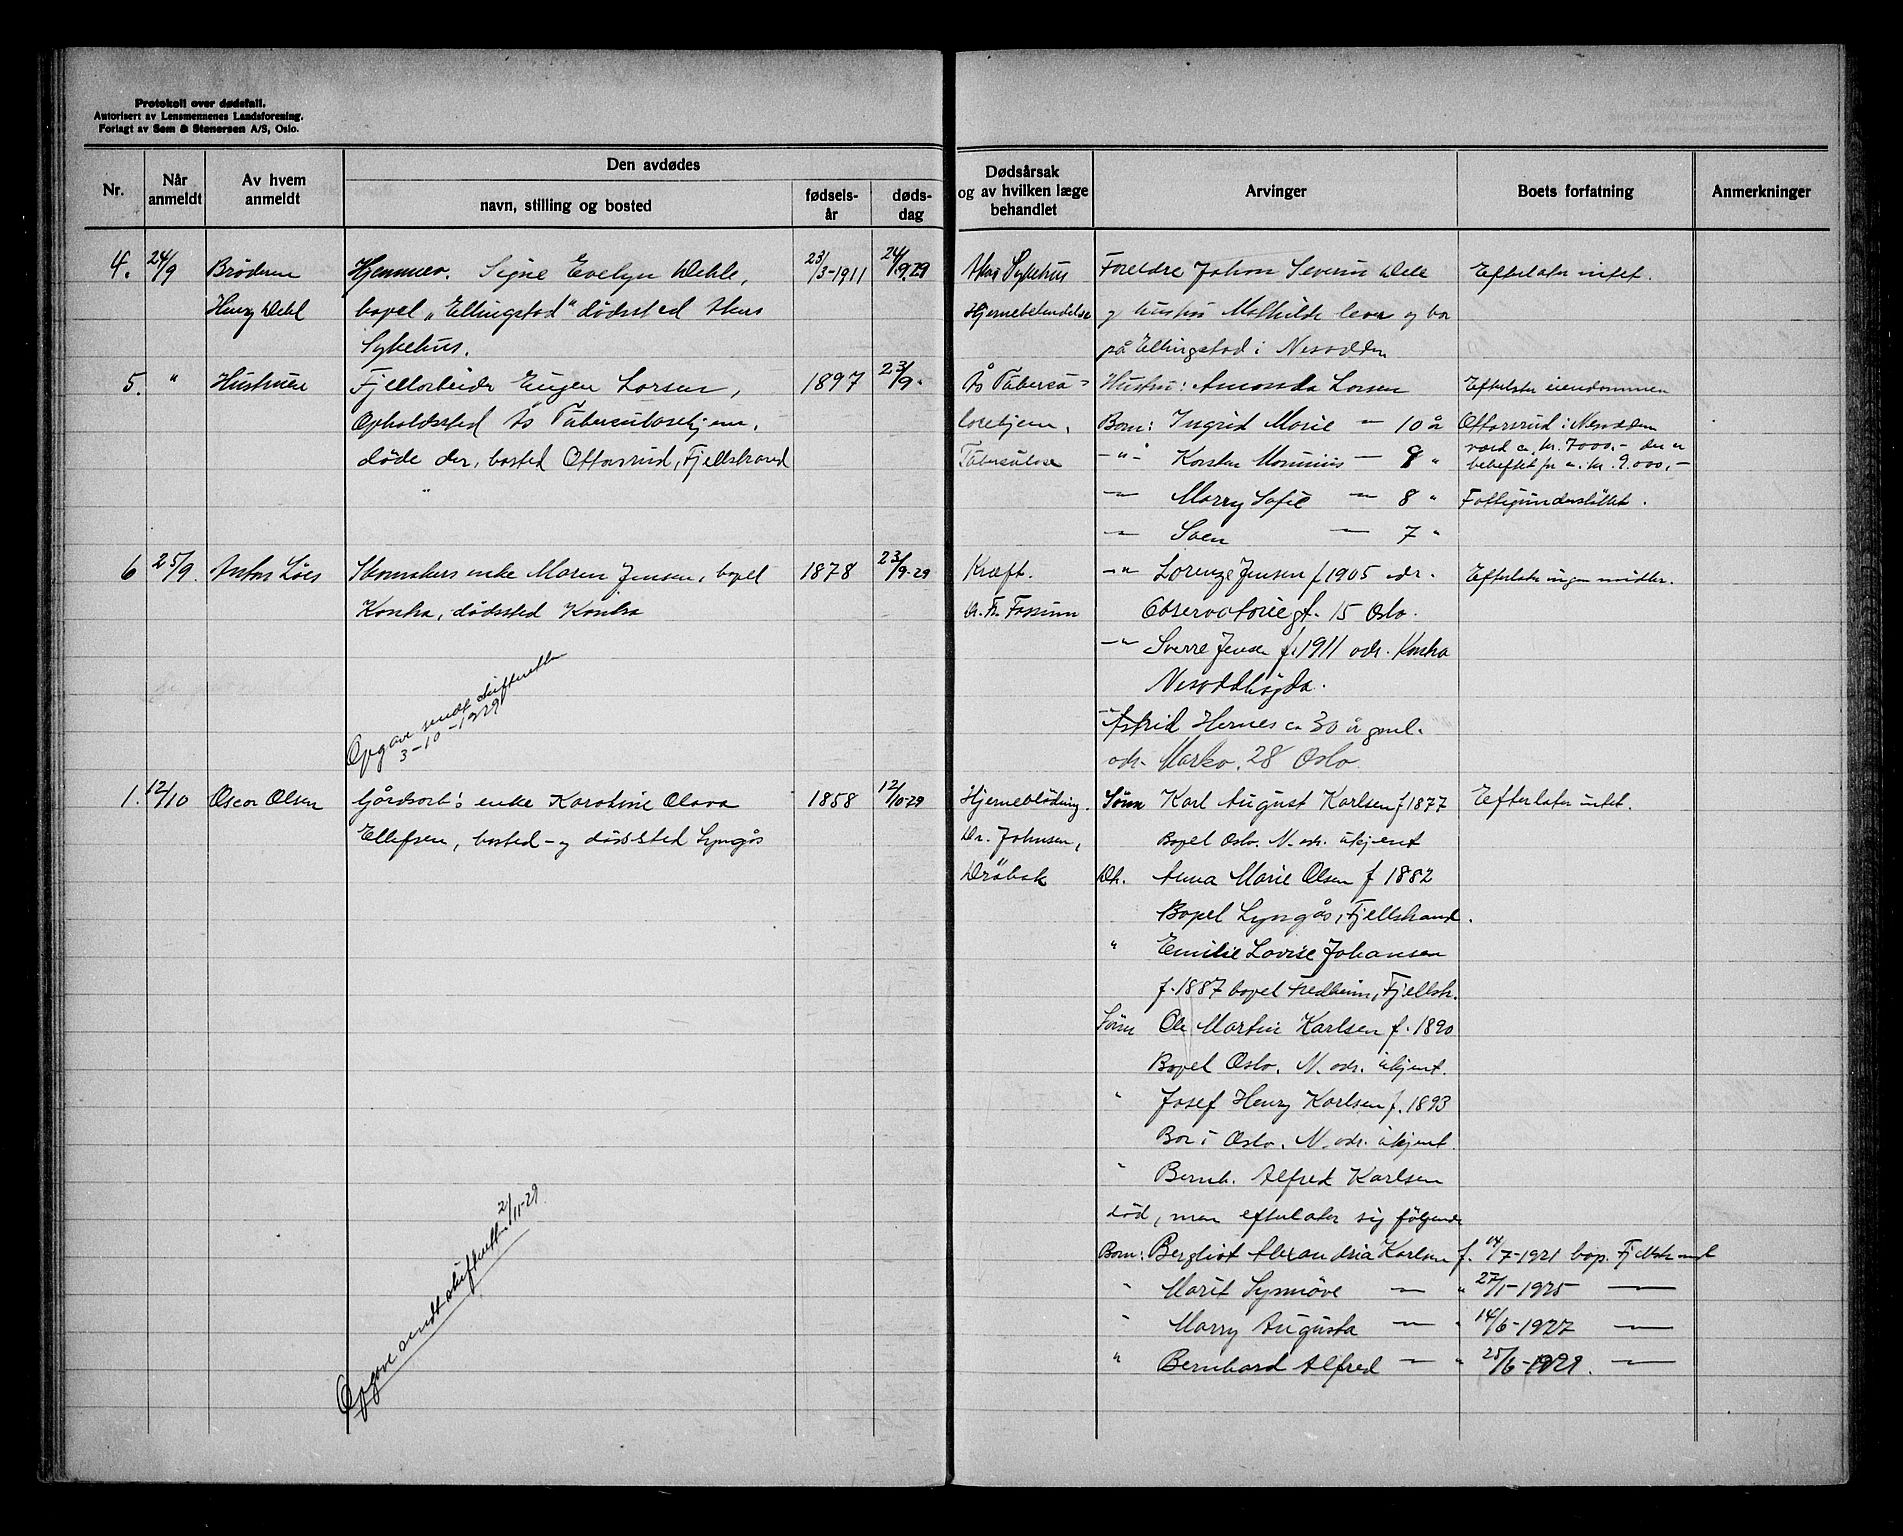 Protokoll over dødsfall.
Autorisert av Lensmennenes Landsforening.
Forlagt av Sem & Stenersen A/S, Oslo.
Nr.
Når anmeldt
Av hvem anmeldt
Den avdødes
navn, stilling og bosted
fødsels-år
døds-dag
Dødsårsak og av hvilken læge behandlet
Arvinger
Boets forfatning
Anmerkninger
4. 24/9 Broderen Hjemmev. Signe Evelyn Dehle, 23/3-1911 24/9.29
Henry Dehl bopel "Ellingstad" dødssted Akers
Sykehus.
Aker Sykehus Foreldre Johan Severin Dele Efterlater intet.
Hjernebetendelse og hustru Mathilde lever og bor
på Ellingstad i Nesodden
5. " Hustruen Fjellarbeider Eugen Larsen, 1897 23/9 "
Opholdssted Ås Tuberculosehjem,
døde der, bosted Ottarsrud, Fjellstrand
"
Ås Tubercu- Hustru: Amanda Larsen Efterlater eiendommen
losehjem, Barn: Ingrid Marie — 10 år Ottarsrud i Nesodden
verd ca. kr. 7000,- den er
Tuberculose -"- Karsten Marinius — 8 " beheftet for ca. kr. 9.000,-
-"- Marry Sofie -"- 8 " Fattigunderstøttet.
-"- Sven — 7 "
6 25/9. Anton Löes Skomakers enke Maren Jensen, bopel 1878 23/9-29
Kontra, dødssted Kontra
Kræft. -"- Lorenze Jensen f 1905 adr. Efterlater ingen midler.
Dr. Fr. Fossum Observatoriegt. 15 Oslo.
-"- Sverre Jensen f. 1911 adr. Kontra
Nesoddhögda.
Astrid Hernes ca 30 år gml.
adr. Markv. 28 Oslo
Opgave sendt skifteretten
3-10-1929
1. 12/10 Oscar Olsen Gårdsarb's enke Karoline Olava 1858 12/10-29
Ellefsen, bosted- og dødssted Lyngås
Hjerneblödning. Sønn Karl August Karlsen f 1877 Efterlater intet.
Dr. Johnsen, Bopel Oslo. N. adr. ukjent
Dröbak Dt. Anna Marie Olsen f 1882
Bopel Lyngås, Fjellstrand.
" Emilie Lovise Johansen
f. 1887 bopel Fredheim, Fjellstr.
Sønn Ole Martin Karlsen f. 1890
Bopel Oslo. N. adr. ukjent.
" Josef Henry Karlsen f. 1893
Bor i Oslo. N. adr. ukjent.
" Bernh. Alfred Karlsen
død, men efterlater sig følgende
Barn: Bergliot Alexandria Karlsen f. 14/7-1921 bop. Fjellstrand
" Marit Synnöve -"- " 27/1-1925 —
" Marry Augusta -"- " 14/6-1927 —
" Bernhard Alfred -"- " 25/6-1929. —
Opgave sendt skifteretten 2/11-29